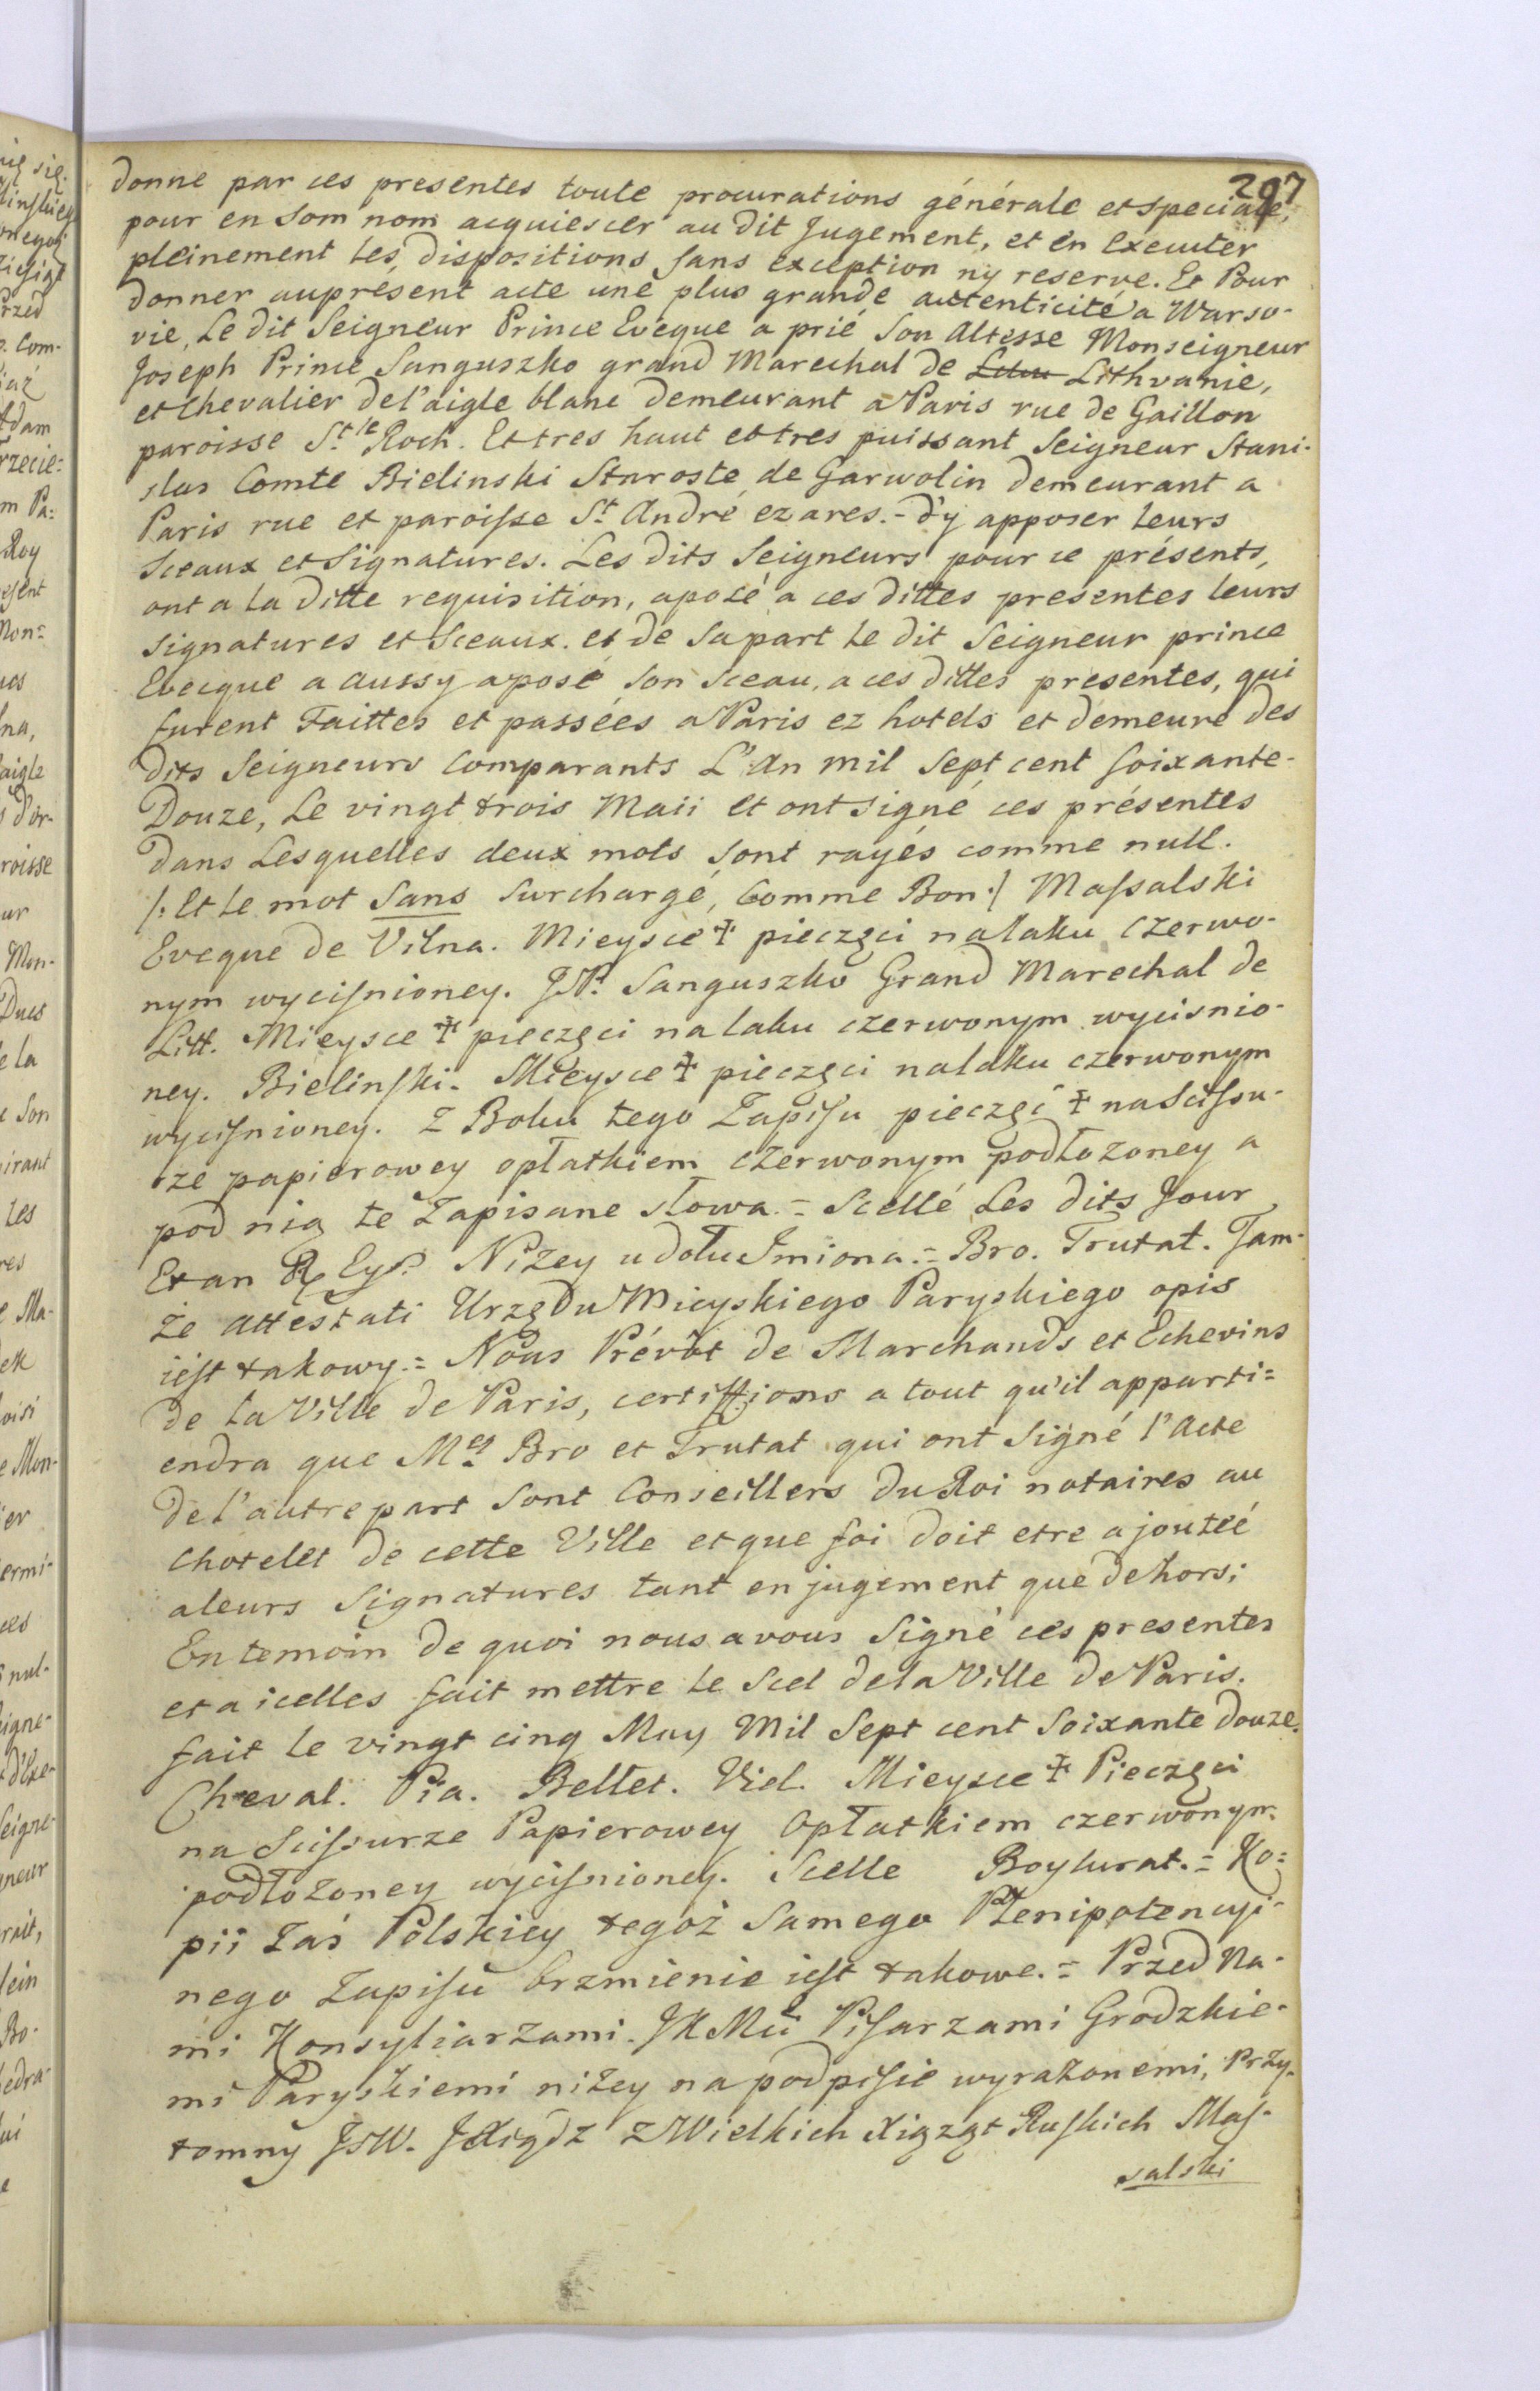 297
donne par ces presentes toute procurations générale et speciale,
pour en Som nom acquiescer au dit Jugement, et en executer
pleinement Les dispositions sans exception ny reserve. Et Pour
donner auprésent acte une plus grande autenticité a Warso-
vie, Le dit Seigneur Prince Evéque a prié Son Altesse Monseigneur
Joseph Prince Sanguszko grand Marechal de Lithvanie,
et Chevalier de l'aigle blanc demeurant a Paris rue de Gaillon
paroisse St. le Roch. Et tres haut et tres puissant Seigneur Stani-
slas Comte Bielinski Staroste de Garwolin demeurant a
Paris rue et paroisse St André ez ares. - d'y apposer leurs
Sceaux et Signatures. Les dits Seigneurs pour ce présents,
ont a la ditte requisition, aposé a ces dittes presentes leurs
signatures et Sceaux. et de Sa part Le dit Seigneur prince
Evecque a aussy aposé Son Sceau, a ces dittes presentes, qui
furent Faittes et passées a Paris ez hotels et demeure des
dits Seigneurs Comparants L'An mil Sept cent Soixante-
Douze, Le vingt trois Maii et ont signé ces présentes
dans Lesquelles deux mots sont rayés comme null.
/: Et Le mot Sans Surchargé, Comme Bon :/ Massalski
Eveque de Vilna. Mieysce ☩ pieczęci na laku Czerwo-
nym wyciśnioney. J.P. Sanguszko Grand Marechal de
Litt. Mieysce ☩ pieczęci na laku czerwonym wyciśnio-
ney. Bielinski. Mieysce ☩ pieczęci na laku czerwonym
wyciśnioney. Z Boku tego Zapisu pieczęć ☩ na Scissu-
rze papierowey opłatkiem czerwonym podłożoney a
pod nią te Zapisane słowa. = Scellé Les dits Jour
Et an Niżey u dołu Imiona. = Bro. Trutat. Tam-
że attestati Urzędu Mieyskiego Paryskiego opis
iest takowy. = Nous Prévôt de Marchands et Echevins
de La Ville de Paris, certiffions a tout qu'il apparti=
endra que Mes Bro et Trutat qui ont Signé l'Acte
de l'autre part Sont Conseillers du Roi notaires au
Chotelet de cette Ville et que foi doit etre ajoutéé
a leurs Signatures tant en jugement que dehors;
En temoin de quoi nous avous Signé ces presentes
et a icelles fait mettre Le Scel de la Ville de Paris.
fait le vingt cinq May Mil Sept cent Soixante douze.
Cheval. Pia. Bellet. Viel. Mieysce ☩ Pieczęci
na Scissurze Papierowey Opłatkiem czerwonym
podłożoney wyciśnioney. Scelle Boylurat. = Ko=
pii Zaś Polskiey tegoż Samego Plenipotencyi-
nego Zapisu brzmienie iest takowe. = Przed Na-
mi Konsyliarzami JKMci Pisarzami Grodzkie-
mi Paryskiemi niżey na podpisie wyrażonemi, Przy-
tomny JsW. JXiądz z Wielkich Xiążąt Ruskich Mas-
salski